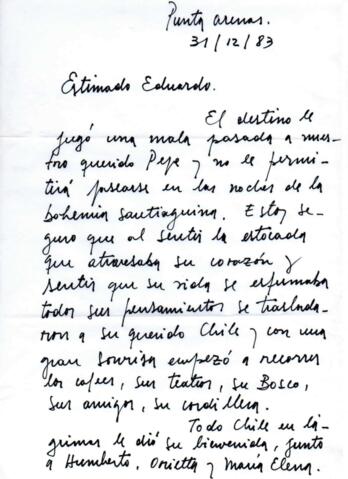 Punta arenas.
31/12/83
Estimado Eduardo.
El destino le
jugó una mala pasada a nues-
tro querido Pepe y no le permi-
tirá pasearse en las noches de la
bohemia santiaguina. Estoy se-
guro que al sentir la estocada
que atravesaba su corazón y
sentir que su vida se esfumaba
todos sus pensamientos se traslada-
ron a su querido Chile y con una
gran sonrisa empezó a recorrer
los cafees, sus teatros, su Bosco,
sus amigos, su cordillera.
Todo Chile en lá-
grimas le dió su bienvenida, junto
a Humberto, Orietta y María Elena.